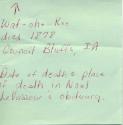 Wat-oh-Kee
died 1878
Council Bluffs, IA
Date of death & place
of death in Noel
LeVasseur's obituary.